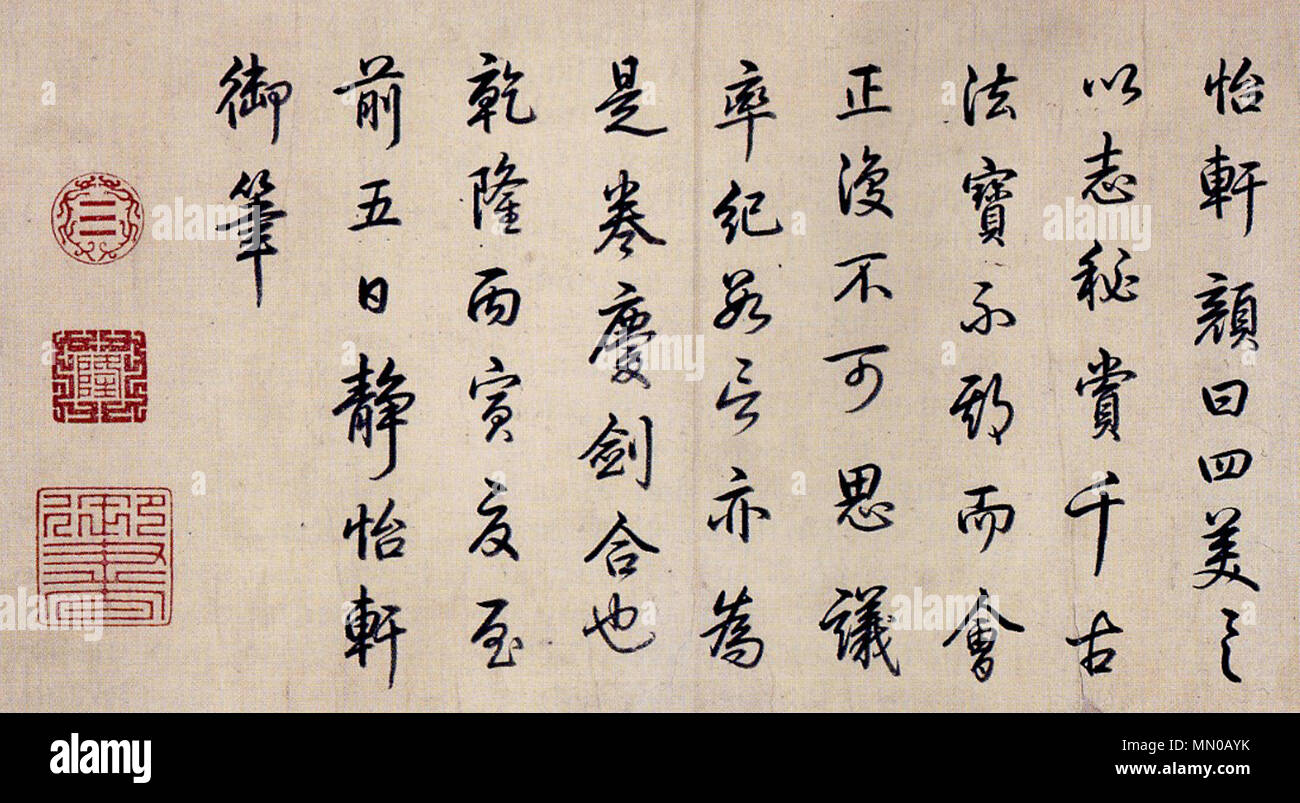 怡軒顏曰四美具
以志秘賞千古
法寶不期而會
正復不可思議
率紀數言亦為
是卷慶劍合也
乾隆丙寅夏至
前五日靜怡軒
御筆
隆
alamy
Image ID: MN0AYK
www.alamy.com